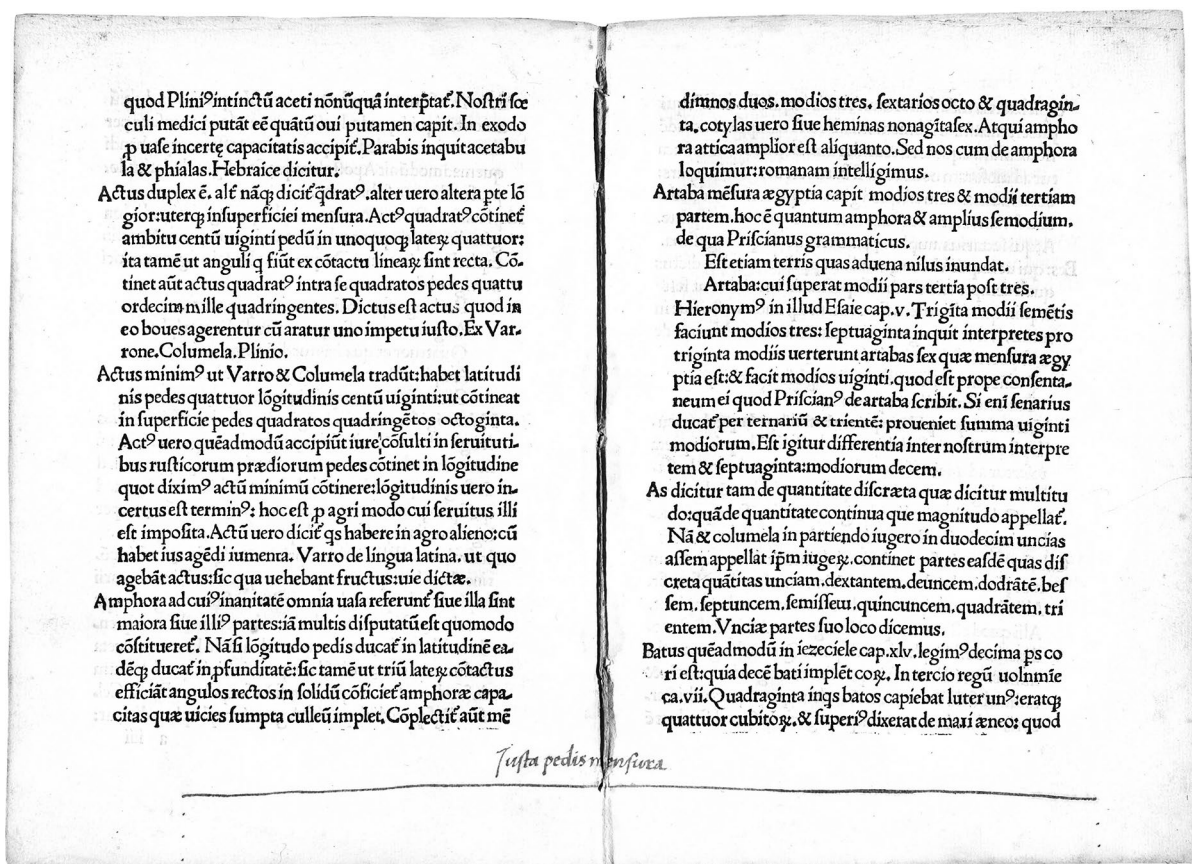 quod Pliniꝰ intinctū aceti nōnūquā interp̄tat᷑. Noſtri ſœ
culi medici putāt eē quātū oui putamen capit. In exodo
ꝓ uaſe incertę capacitatis accipit᷑. Parabis inquit acetabu
la & phialas. Hebraice dicitur:
Actus duplex ē. alt᷑ nāqꝫ dicit᷑ q̄dratꝰ. alter uero altera ꝑte lō
gior: uterqꝫ inſuperficiei menſura. Actꝰ quadratꝰ cōtinet᷑
ambitu centū uiginti pedū in unoquoqꝫ lateꝝ quattuor:
ita tamē ut anguli q fiūt ex cōtactu lineaꝝ ſint recta. Cō⸗
tinet aūt actus quadratꝰ intra ſe quadratos pedes quattu
ordecim mille quadringentes. Dictus eſt actus quod in
eo boues agerentur cū aratur uno impetu iuſto. Ex Var⸗
rone. Columela. Plinio.
Actus minimꝰ ut Varro & Columela tradūt: habet latitudi
nis pedes quattuor lōgitudinis centū uiginti: ut cōtineat
in ſuperficie pedes quadratos quadringētos octoginta.
Actꝰ uero quēadmodū accipiūt iure cōſulti in ſeruituti⸗
bus ruſticorum prædiorum pedes cōtinet in lōgitudine
quot diximꝰ actū minimū cōtinere: lōgitudinis uero in⸗
certus eſt terminꝰ: hoc eſt ꝓ agri modo cui ſeruitus illi
eſt impoſita. Actū uero dicit᷑ qs habere in agro alieno: cū
habet ius agēdi iumenta. Varro de lingua latina. ut quo
agebāt actus: ſic qua uehebant fructus: uie dictæ.
Amphora ad cuiꝰ inanitatē omnia uaſa referunt᷑ ſiue illa ſint
maiora ſiue illiꝰ partes: iā multis diſputatū eſt quomodo
cōſtitueret᷑. Nā ſi lōgitudo pedis ducat᷑ in latitudinē ea⸗
dēqꝫ ducat᷑ in ꝓfunditatē: ſic tamē ut triū lateꝝ cōtactus
efficiāt angulos rectos in ſolidū cōficiet᷑ amphoræ capa⸗
citas quæ uicies ſumpta culleū implet. Cōplectit᷑ aūt mē
dimnos duos. modios tres. ſextarios octo & quadragin⸗
ta. cotylas uero ſiue heminas nonagītaſex. Atqui ampho
ra attica amplior eſt aliquanto. Sed nos cum de amphora
loquimur: romanam intelligimus.
Artaba mēſura ægyptia capit modios tres & modii tertiam
partem. hoc ē quantum amphora & amplius ſemodium.
de qua Priſcianus grammaticus.
Eſt etiam terris quas aduena nilus inundat.
Artaba: cui ſuperat modii pars tertia poſt tres.
Hieronymꝰ in illud Eſaie cap. v. Trigīta modii ſemētis
faciunt modios tres: ſeptuaginta inquit interpretes pro
triginta modiis uerterunt artabas ſex quæ menſura ægy
ptia eſt: & facit modios uiginti. quod eſt prope conſenta⸗
neum ei quod Priſcianꝰ de artaba ſcribit. Si enī ſenarius
ducat᷑ per ternariū & trientē: proueniet ſumma uiginti
modiorum. Eſt igitur differentia inter noſtrum interpre
tem & ſeptuaginta: modiorum decem.
As dicitur tam de quantitate diſcræta quæ dicitur multitu
do: quā de quantitate continua que magnitudo appellat᷑.
Nā & columela in partiendo iugero in duodecim uncias
aſſem appellat ip̄m iugeꝝ. continet partes eaſdē quas diſ
creta quātitas unciam. dextantem. deuncem. dodrātē. beſ
ſem. ſeptuncem. ſemiſſem. quincuncem. quadrātem. tri
entem. Vnciæ partes ſuo loco dicemus.
Batus quēadmodū in iezeciele cap. xlv. legimꝰ decima ꝑs co
ri eſt: quia decē bati implēt coꝝ. In tercio regū uolnmie
ca. vii. Quadraginta inqs batos capiebat luter unꝰ: eratqꝫ
quattuor cubitoꝝ. & ſuperiꝰ dixerat de mari æneo: quod
Iuſta pedis menſura